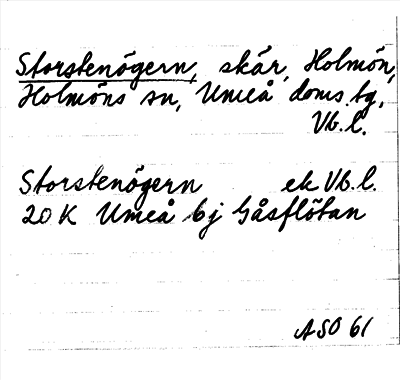 Storstenögern, skär, Holmön,
Holmöns sn, Umeå doms.tg,
Vb.l.
Storstenögern ek Vb.l.
20 K Umeå bj Gåsflötan
ASO 61